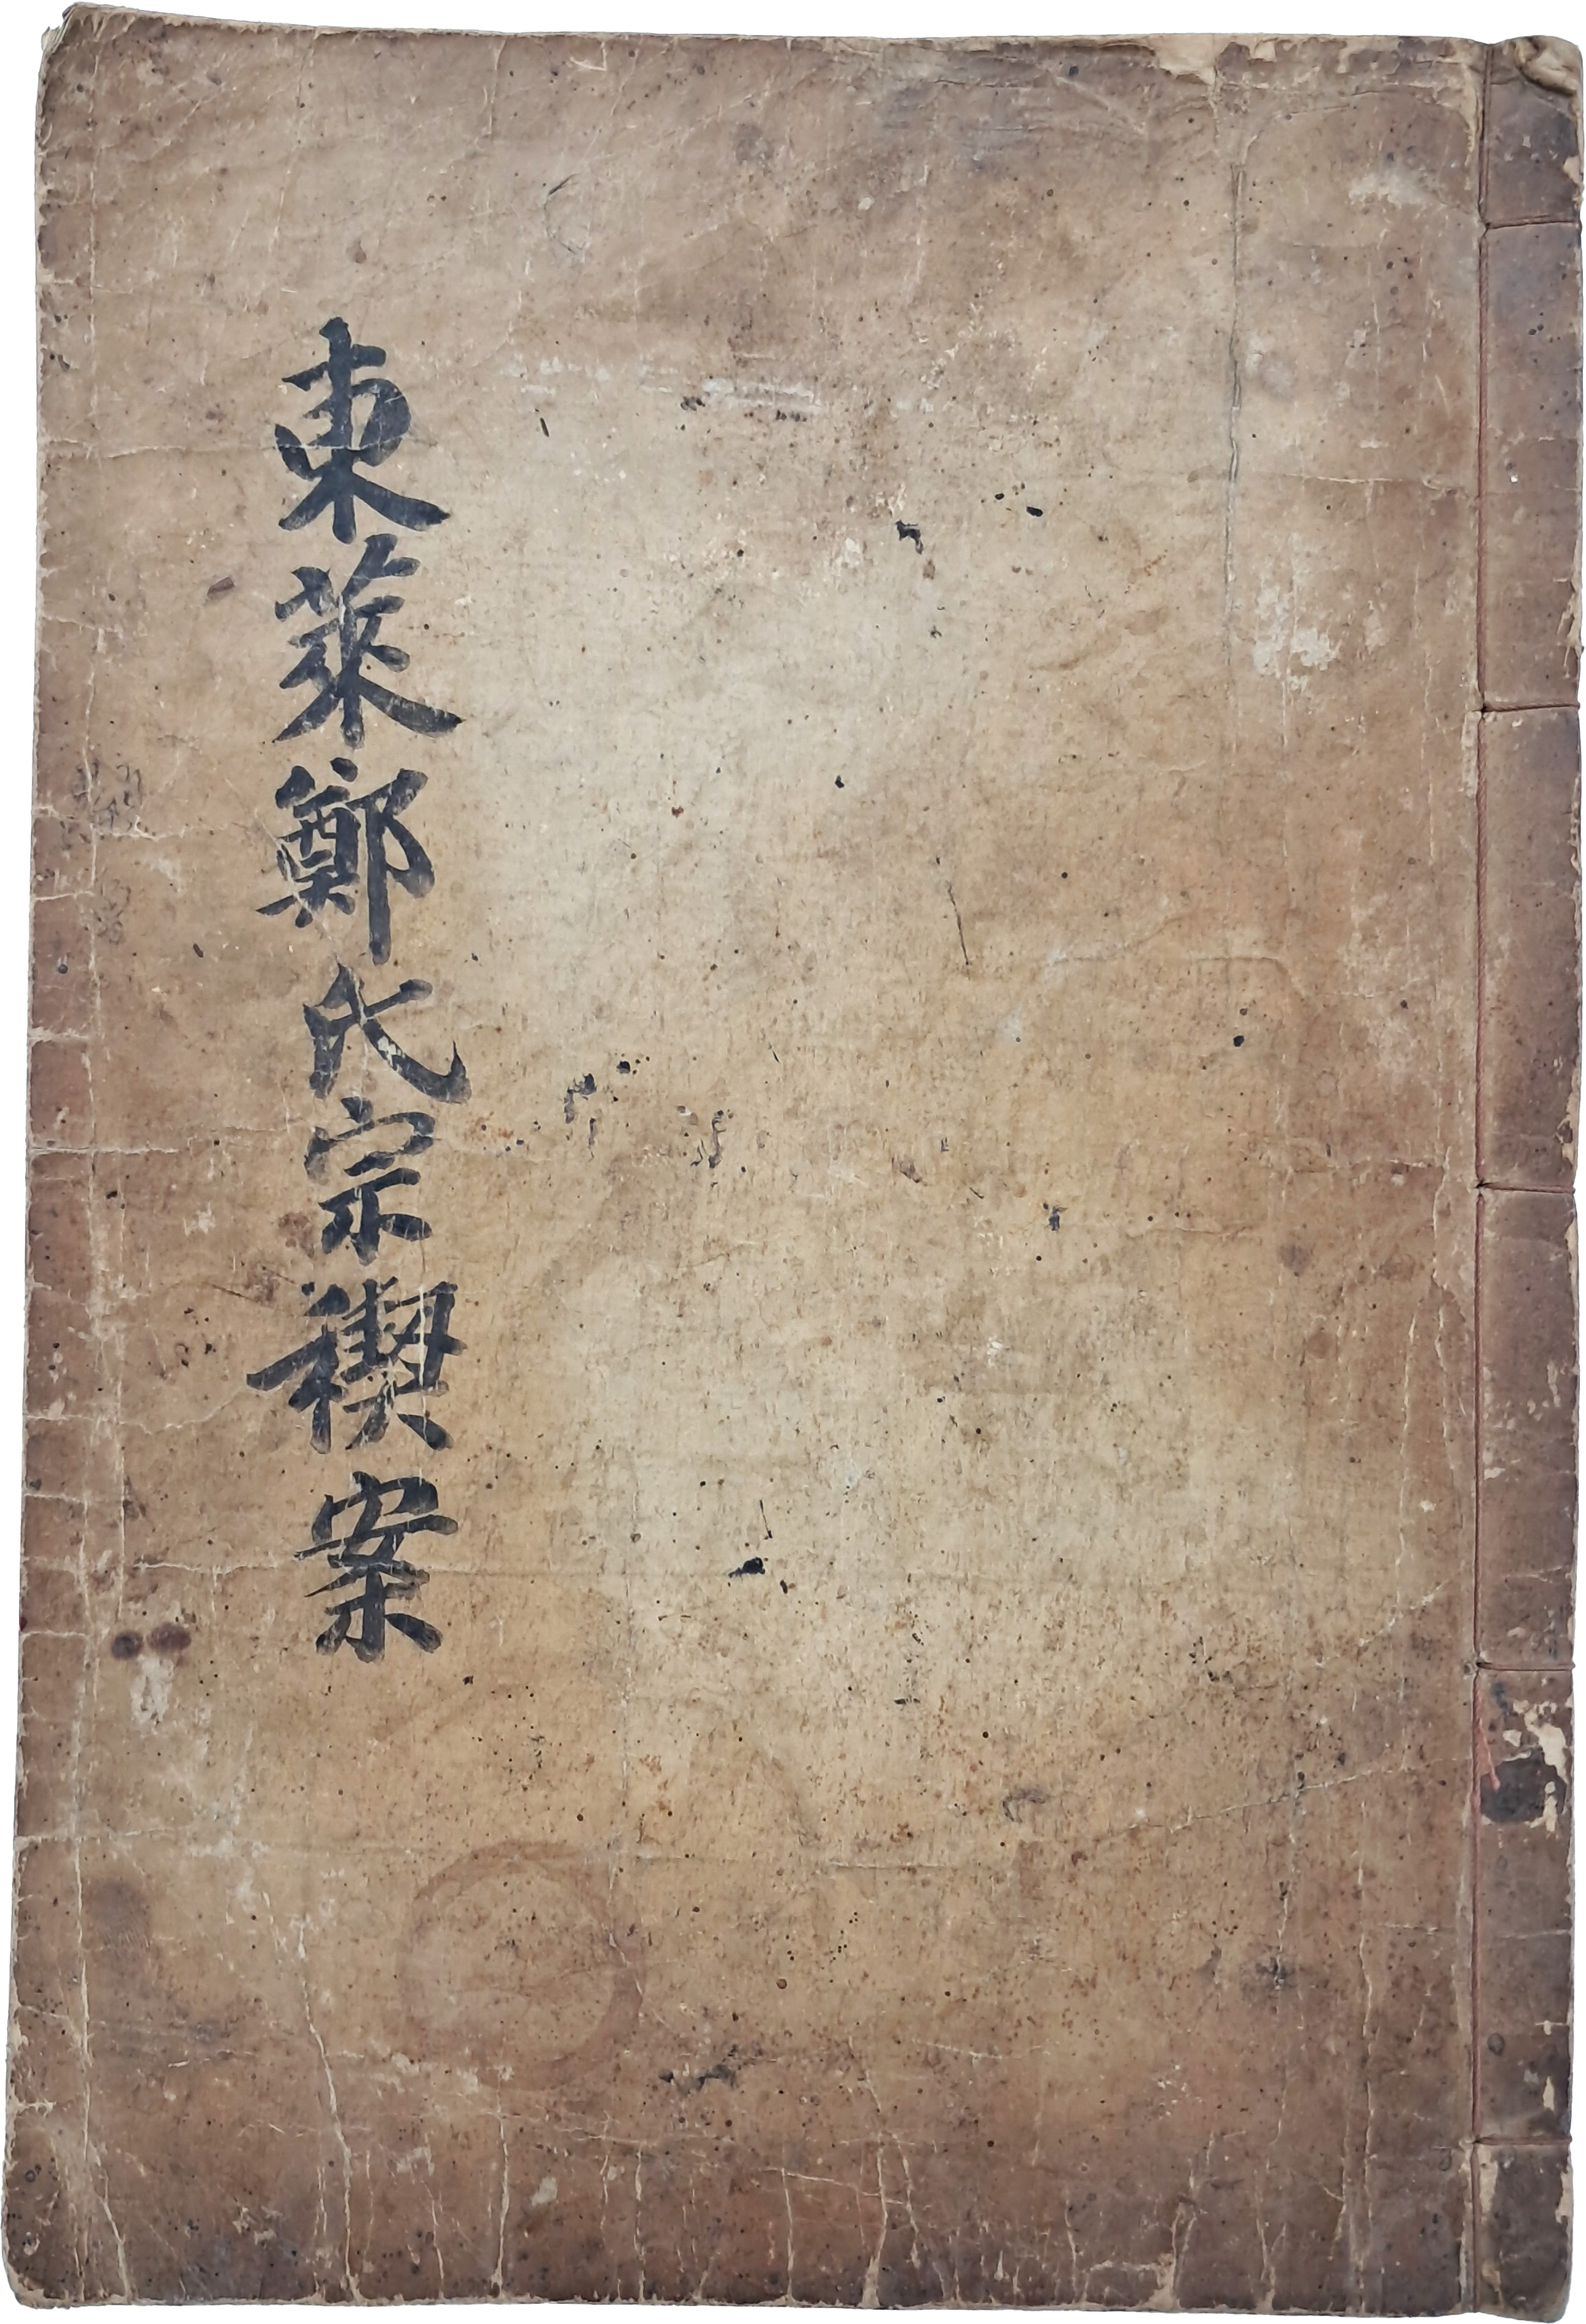 東萊鄭氏宗禊案